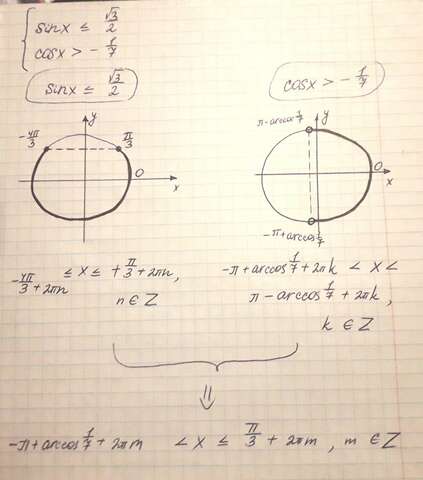 sinx ≤ √3/2
cosx > - 1/7
sinx ≤ √3/2
cosx > - 1/7
y
-4π/3
π/3
0
x
y
π-arccos 1/7
0
x
-π+arccos 1/7
-4π/3 + 2πn ≤ x ≤ +π/3 + 2πn,
n ∈ Z
-π+arccos 1/7 + 2πk < x <
π - arccos 1/7 + 2πk,
k ∈ Z
⇓
-π+arccos 1/7 + 2πm < x ≤ π/3 + 2πm, m ∈ Z